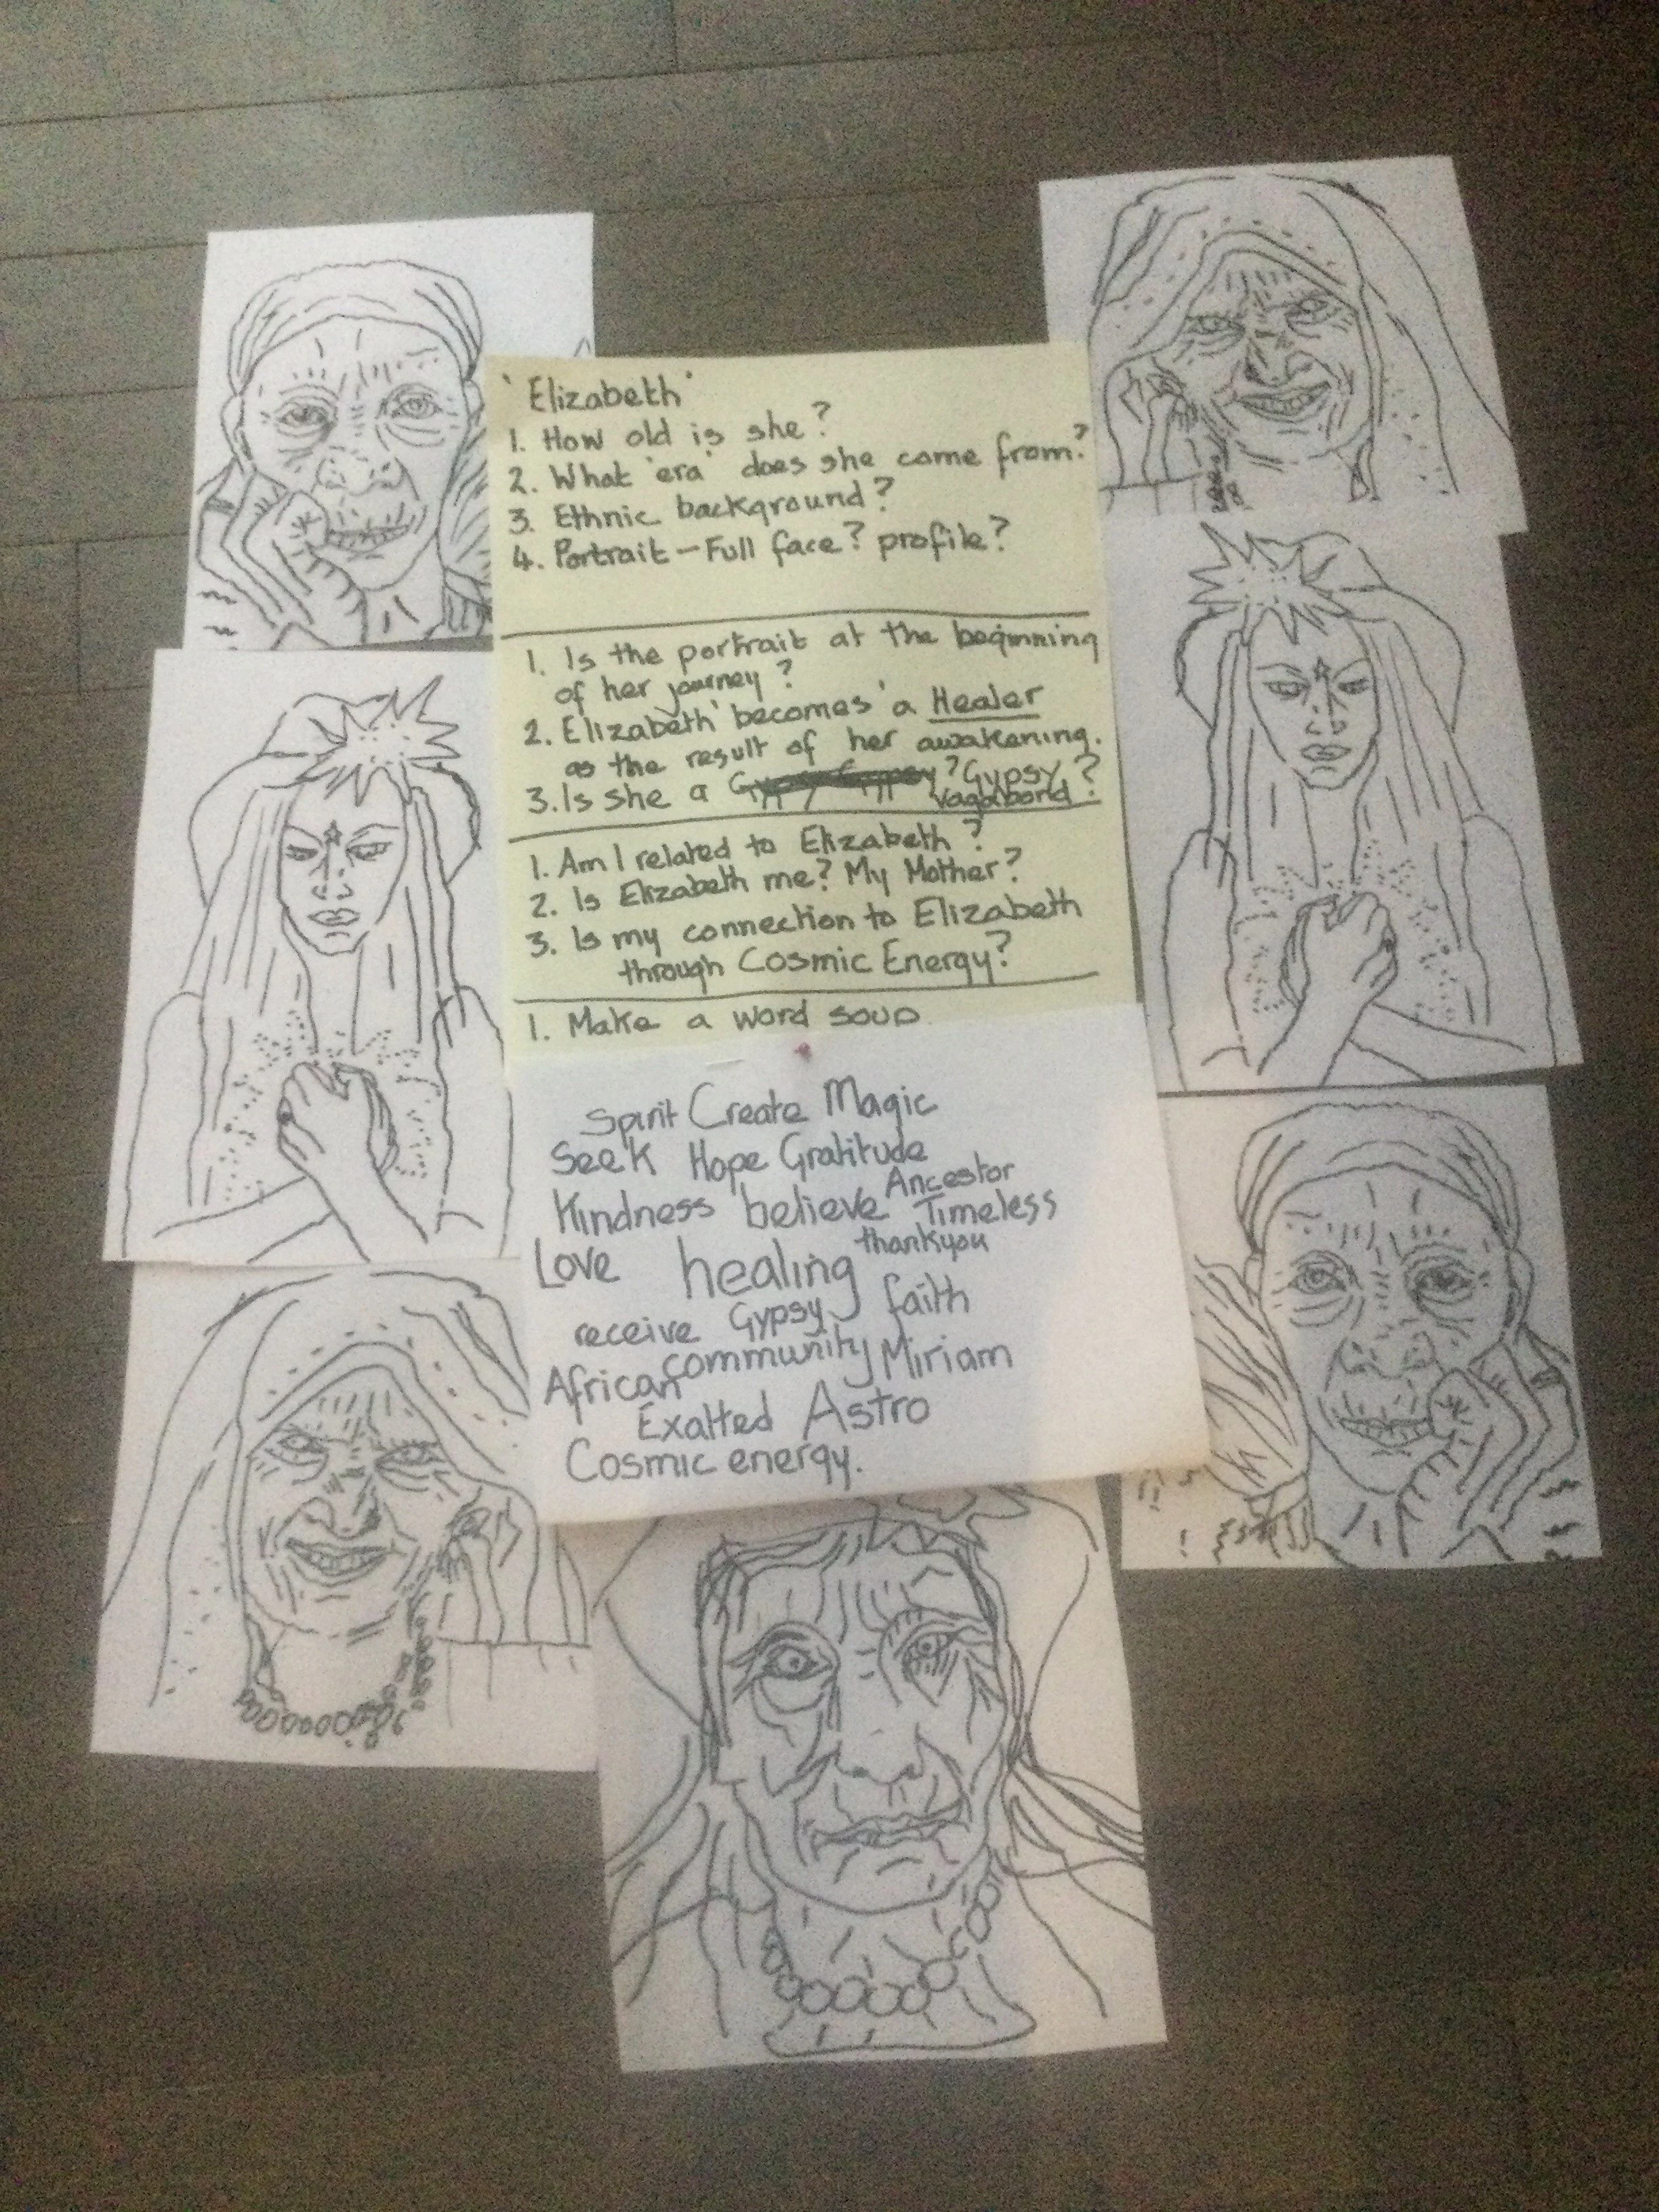 'Elizabeth'
1. How old is she?
2. What 'era' does she come from?
3. Ethnic background?
4. Portrait - Full face? profile?
1. Is the portrait at the beginning
of her journey?
2. Elizabeth 'becomes' a Healer
as the result of her awakening.
3. Is she a Gypsy Gypsy? Gypsy?
Vagabond
1. Am I related to Elizabeth?
2. Is Elizabeth me? My Mother?
3. Is my connection to Elizabeth
through Cosmic Energy?
1. Make a word soup
Spirit Create Magic
Seek Hope Gratitude
Ancestor
Kindness believe Timeless
thankyou
Love healing
receive Gypsy faith
African community Miriam
Exalted Astro
Cosmic energy.